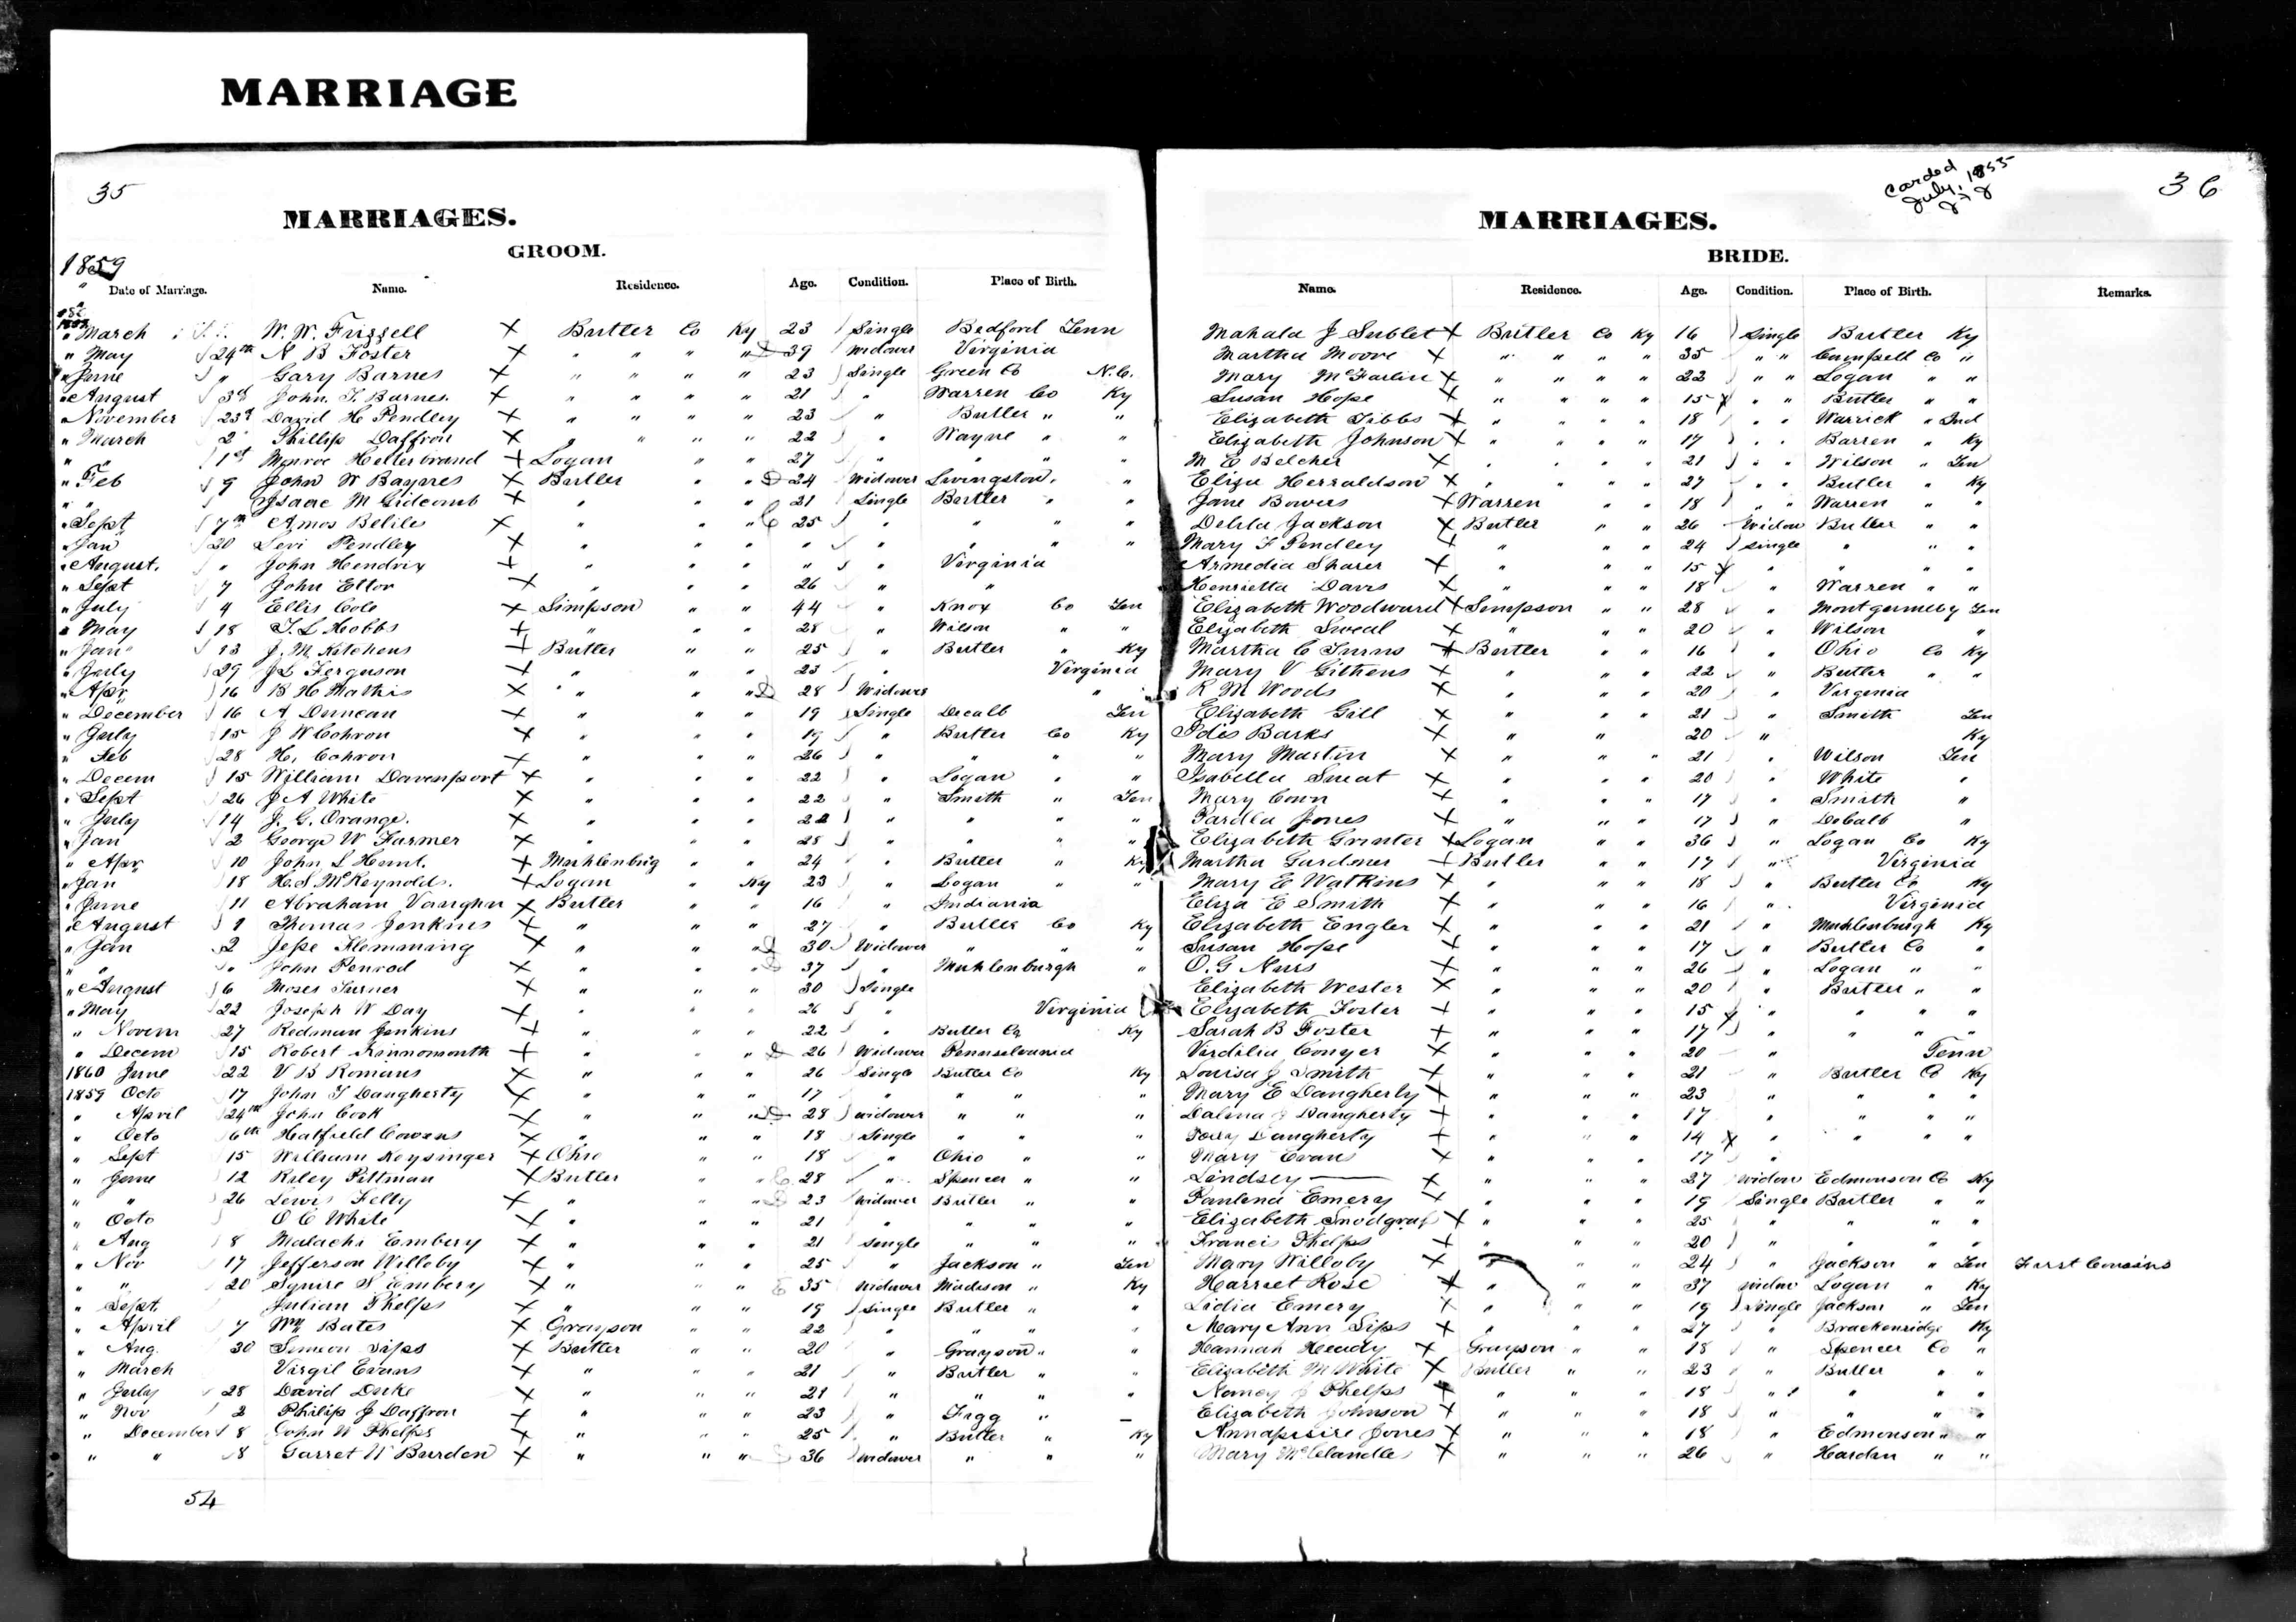 MARRIAGE
35
MARRIAGES.
GROOM.
1859
Date of Marriage. Name. Residence. Age. Condition. Place of Birth.
March W. W. Frizzell X Butler Co Ky 23 Single Bedford Tenn
" May 24th N B Foster X " " " " 39 Widower Virginia
" June " Gary Barnes X " " " " 23 Single Green Co N.C.
" August 3d John. T. Barnes. X " " " " 21 " Warren Co Ky
" November 23d David H Pendley X " " " " 23 " Butler " "
" March 2 Phillip Daffron X " " " " 22 " Wayne " "
" " 1st Monroe Hellerbrand X Logan " " 27 " " " "
" Feb 9 John W Baynes X Butler " " 24 Widower Livingston. "
" " Isaac M Gidcomb X " " " 21 Single Butler " "
" Sept 7th Amos Belile X " " " 25 " " " "
" Jan 20 Levi Pendley X " " " " " " " "
" August. " John Hendrix X " " " " " Virginia
" Sept 7 John Ettor X " " " 26 " "
" July 4 Ellis Cole X Simpson " " 44 " Knox Co Ten
" May 18 T. L Hobbs X " " " 28 " Wilson " "
" Jan 13 J. M. Kitchens X Butler " " 25 " Butler " Ky
" July 29 J L Ferguson X " " " 23 " Virginia
" Apr 16 B H Mathis X " " " 28 Widower "
" December 16 A Duncan X " " " 19 Single Decalb Ten
" July 15 J W Cohron X " " " 19 " Butler Co Ky
" Feb 28 H. Cohron X " " " 26 " " " "
" Decem 15 William Davenport X " " " 22 " Logan " "
" Sept 26 J A White X " " " 22 " Smith " Ten
" July 14 J. G. Orange. X " " " 22 " " " "
" Jan 2 George W Farmer X " " " 28 " " " "
" Apr 10 John L Hunt. X Muhlenbug " " 24 " Butler " Ky
" Jan 18 H. S. McReynolds. X Logan " Ky 23 " Logan " "
" June 11 Abraham Vaughn X Butler " " 16 " Indiania
" August 1 Thomas Jenkins X " " " 27 " Butler Co Ky
" Jan 2 Jesse Flemming X " " " 30 Widower " " "
" " " John Penrod X " " " 37 " Muhlenburgh "
" August 6 Moses Turner X " " " 30 Single
" May 22 Joseph W Day X " " " 26 " Virginia
" Novem 27 Redman Jenkins X " " " 22 " Butler Co Ky
" Decem 15 Robert Kinnomonth X " " " 26 Widower Pennselvania
1860 June 22 V B Romans X " " " 26 Single Butler Co Ky
1859 Octo 17 John T Daugherty X " " " 17 " " " "
" April 24th John Cook X " " " 28 widower " " "
" Octo 6th Hatfield Cowens X " " " 18 Single " " "
" Sept 15 William Keysinger X Ohio " " 18 " Ohio " "
" June 12 Riley Pittman X Butler " " 28 " Spencer " "
" " 26 Lewis Felty X " " " 23 widower Butler " "
" Octo O C White X " " " 21 " " " "
" Aug 8 Malachi Embery X " " " 21 single " " "
" Nov 17 Jefferson Willoby X " " " 25 " Jackson " Ten
" " 20 Squire S Embery X " " " 35 widower Madison " Ky
" Sept. Julian Phelps X " " " 19 single Butler " "
" April 7 Wm Bates X Grayson " " 22 " " " "
" Aug. 30 Simeon Sips X Butler " " 20 " Grayson " "
" March Virgil Evans X " " " 21 " Butler " "
" July 28 David Duke X " " " 21 " " " "
" Nov 2 Philip J Daffron X " " " 23 " Fagg " –
" December 8 John W Phelps X " " " 25 " Butler " Ky
" " 8 Garret W Burden X " " " 36 widower " " "
54
Carded
July, 1955
36
MARRIAGES.
BRIDE.
Name. Residence. Age. Condition. Place of Birth. Remarks.
Mahala J Sublet X Butler Co Ky 16 Single Butler Ky
Martha Moore X " " " " 35 " " Campbell Co "
Mary McFarlin X " " " " 22 " " Logan " "
Susan Hope X " " " " 15 X " " Butler " "
Elizabeth Tibbs X " " " " 18 " " Warrick " Ind
Elizabeth Johnson X " " " " 17 " " Barren " Ky
M E Belcher X " " " " 21 " " Wilson " Ten
Eliza Herraldson X " " " " 27 " " Butler " Ky
Jane Bowers X Warren " " 18 " " Warren " "
Delila Jackson X Butler " " 26 Widow Butler " "
Mary F Pendley X " " " 24 single " " "
Armedia Sharer X " " " 15 X " " " "
Henrietta Davis X " " " 18 " Warren " "
Elizabeth Woodward X Simpson " " 28 " Montgomeby Ten
Elizabeth Sweal X " " " 20 " Wilson "
Martha C Turns X Butler " " 16 " Ohio Co Ky
Mary V Githens X " " " 22 " Butler " "
R M Woods X " " " 20 " Virginia
Elizabeth Gill X " " " 21 " Smith Ten
Idis Barks X " " 20 " Ky
Mary Martin X " " " 21 " Wilson Ten
Isabella Smeat X " " " 20 " White "
Mary Conn X " " " 17 " Smith "
Pardla Jones X " " " 17 " Decalb "
Elizabeth Grinter X Logan " " 36 " Logan Co Ky
Martha Gardner X Butler " " 17 " Virginia
Mary E Watkins X " " " 18 " Butler Co Ky
Eliza E Smith X " " " 16 " Virginia
Elizabeth Engler X " " " 21 " Muhlenburgh Ky
Susan Hope X " " " 17 " Butler Co "
O. G Nurs X " " " 26 " Logan " "
Elizabeth Wester X " " " 20 " Butler " "
Elizabeth Foster X " " " 15 X " " " "
Sarah B Foster X " " " 17 " " " "
Virdilia Conyer X " " " 20 " Tenn
Louisa J Smith X " " " 21 " Butler Co Ky
Mary E Daugherty X " " " 23 " " " "
Dalina J Daugherty X " " " 17 " " " "
Polly Daugherty X " " " 14 X " " " "
Mary Evans X " " " 17 "
Lindsey — X " " " 27 widow Edmonson Co Ky
Paulena Emery X " " " 19 Single Butler " "
Elizabeth Snodgrass X " " " 25 " " " "
Francis Phelps X " " " 20 " " " "
Mary Willoby X " " 24 " Jackson " Ten First Cousins
Harriet Rose X " " " 37 widow Logan " Ky
Lidia Emery X " " " 19 single Jackson " Ten
Mary Ann Sips X " " " 27 " Brackenridge Ky
Hannah Heady X Grayson " " 18 " Spencer Co "
Elizabeth M White X Butler " " 23 " Butler " "
Nancy J Phelps X " " " 18 " " " "
Elizabeth Johnson X " " " 18 " " " "
Jones X " " " 18 " Edmonson " "
Mary McClandles X " " " 26 " Hardan " "